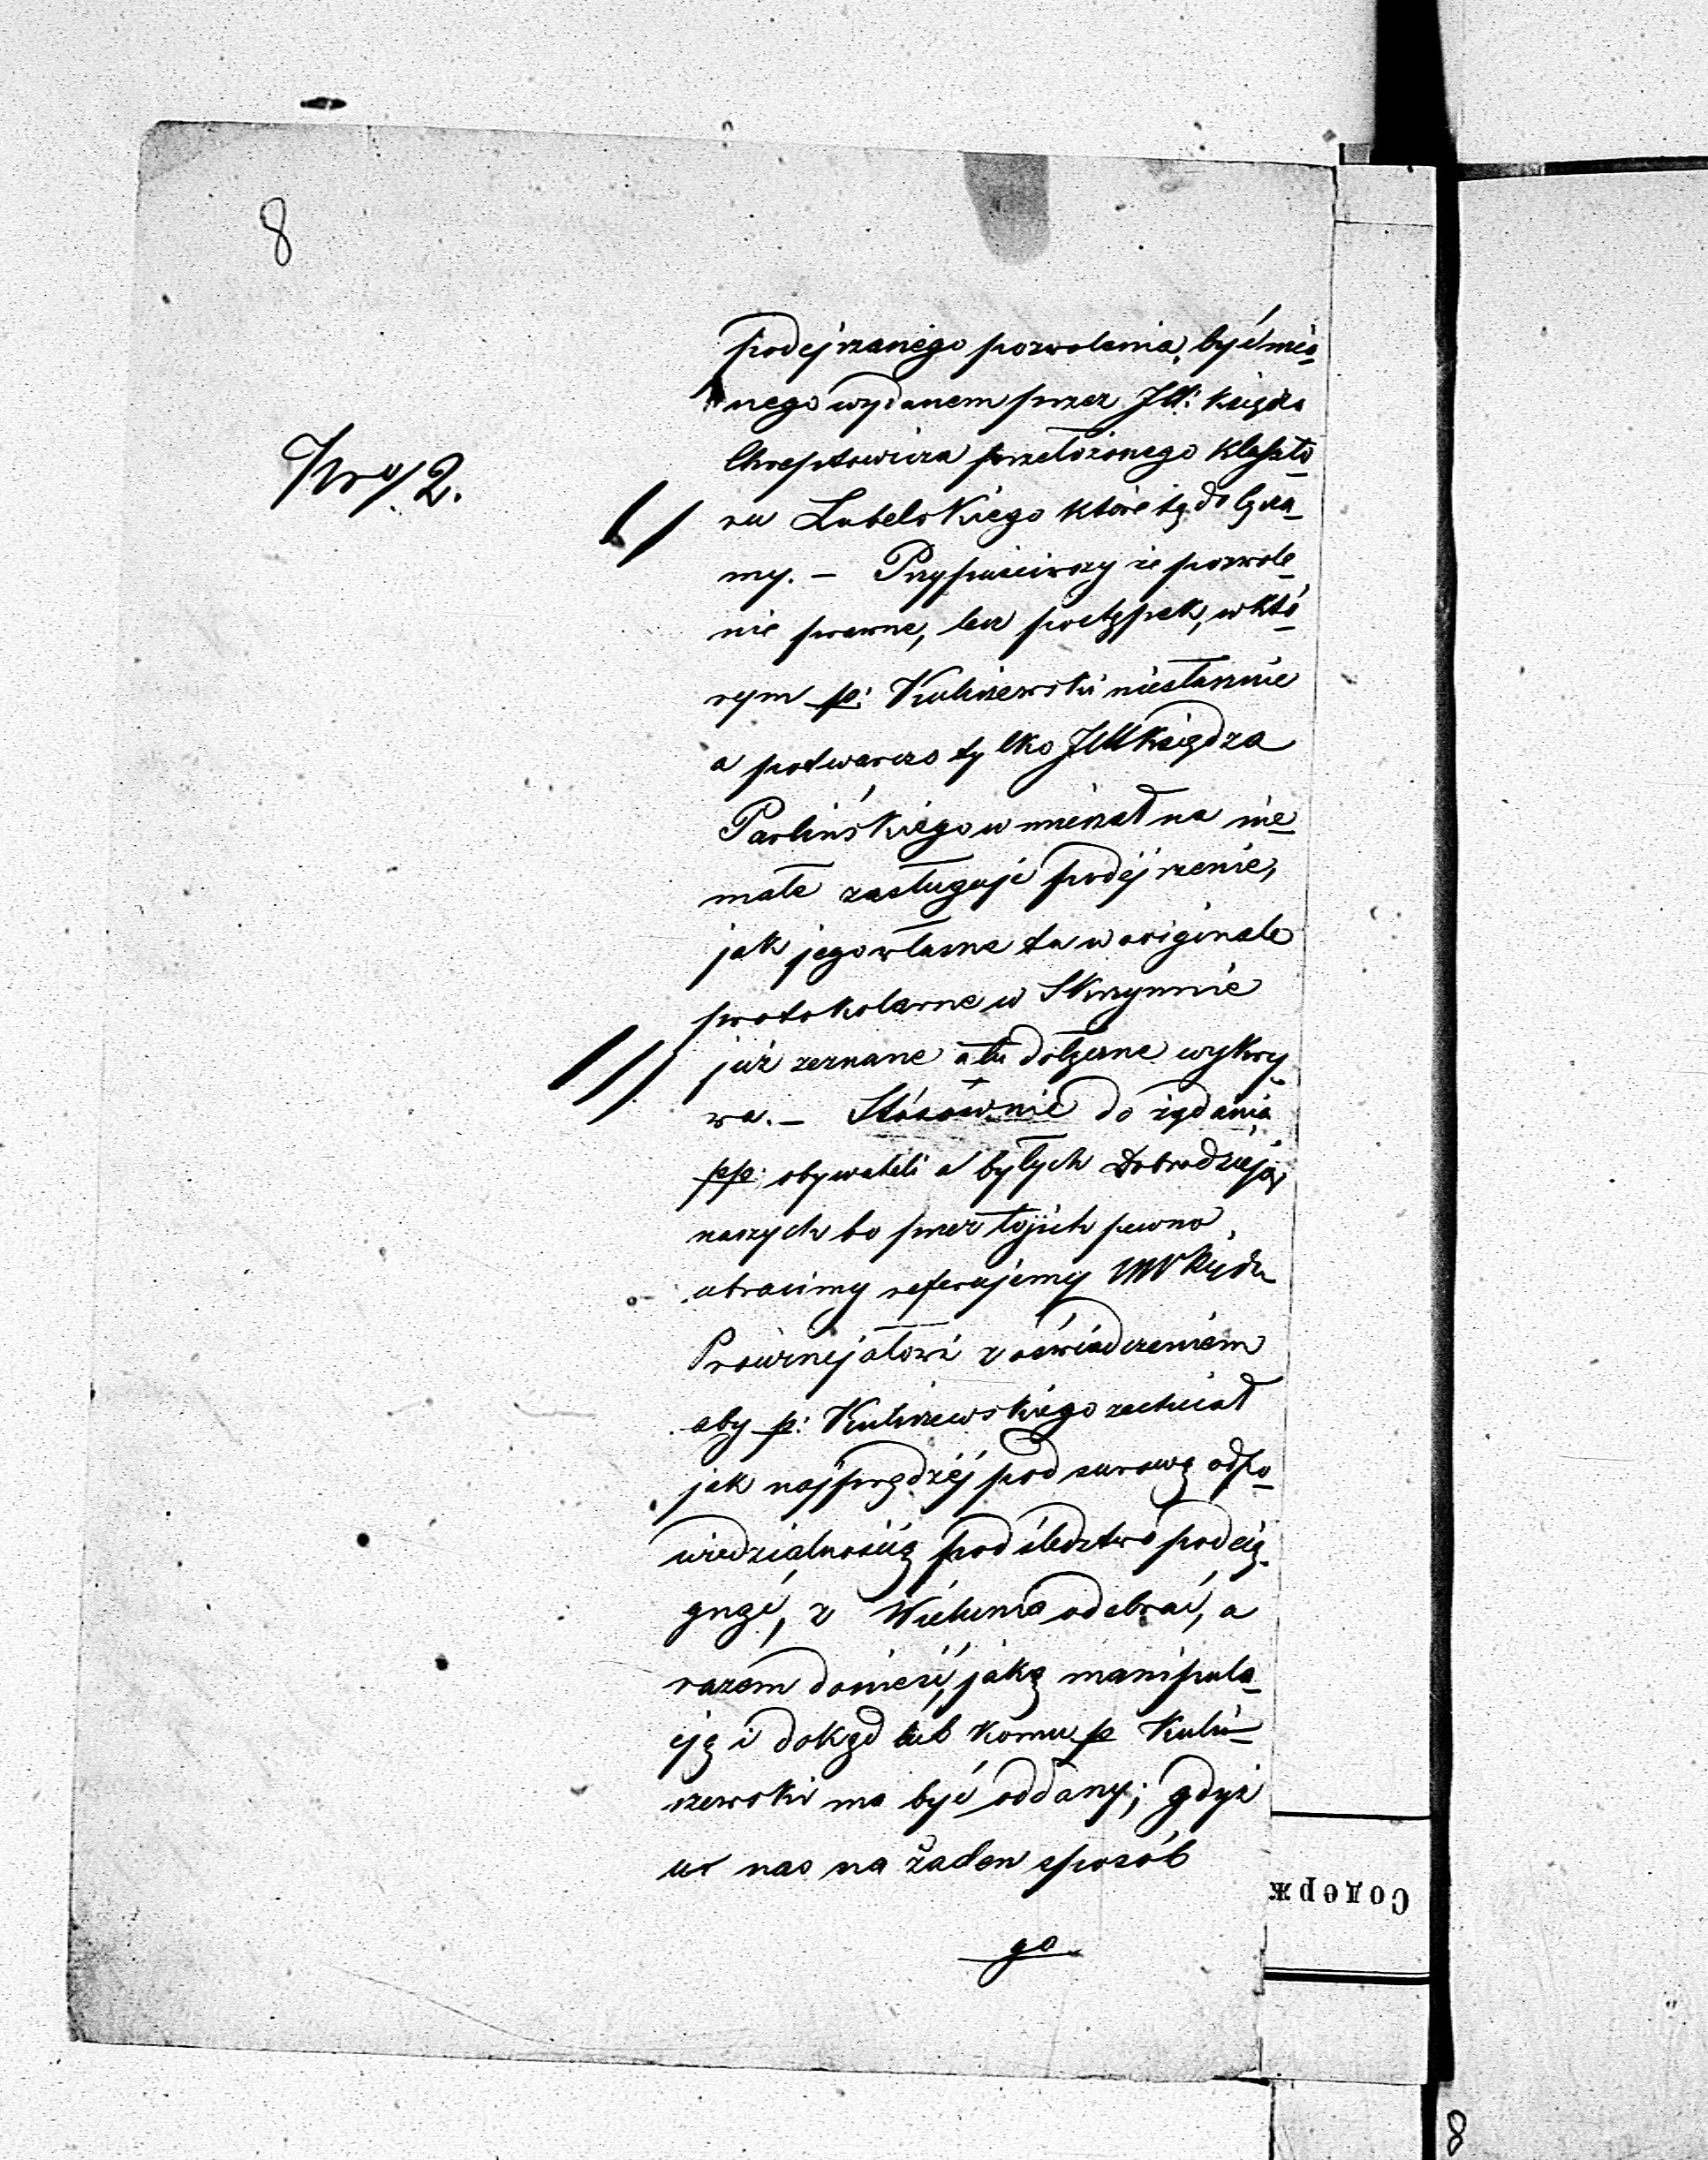 8
podejrzanego pozwolenia, być mia_
nego wydanem przez JM: księdza
Chreptowicza przełożonego klaszto_
Nro/2.
ru Lubelskiego które tę dołącza_
my. – Przypuściwszy że pozwole_
nie prawne, lecz postępek, w któ_
rym p: Kuliszewski niesłusznie
a potwarczo tylko JM księdza
Parlińskiego wmieszał na nie_
małe zasługuje podejrzenie,
jak jego własne tu w originale
protokolarne w Skrzynnie
już zeznane a tu dołączne wykry_
wa. – Stósownie do żądania
pp: obywateli a byłych Dobrodziejów
naszych bo przez to jich pewno
utracimy referujemy
Prowincjałowi z oświadczeniem
aby p: Kuliszewskiego zechciał
jak najprędzéj pod surową odpo_
wiedzialnością pod śledztwo pocią_
gnąć, z Wielunia odebrać, a
razem donieść, jaką manipula_
cją i dokąd lub komu p Kuli_
szewski ma być oddany; gdyż
u nas na żaden sposób
go
Содерж
8